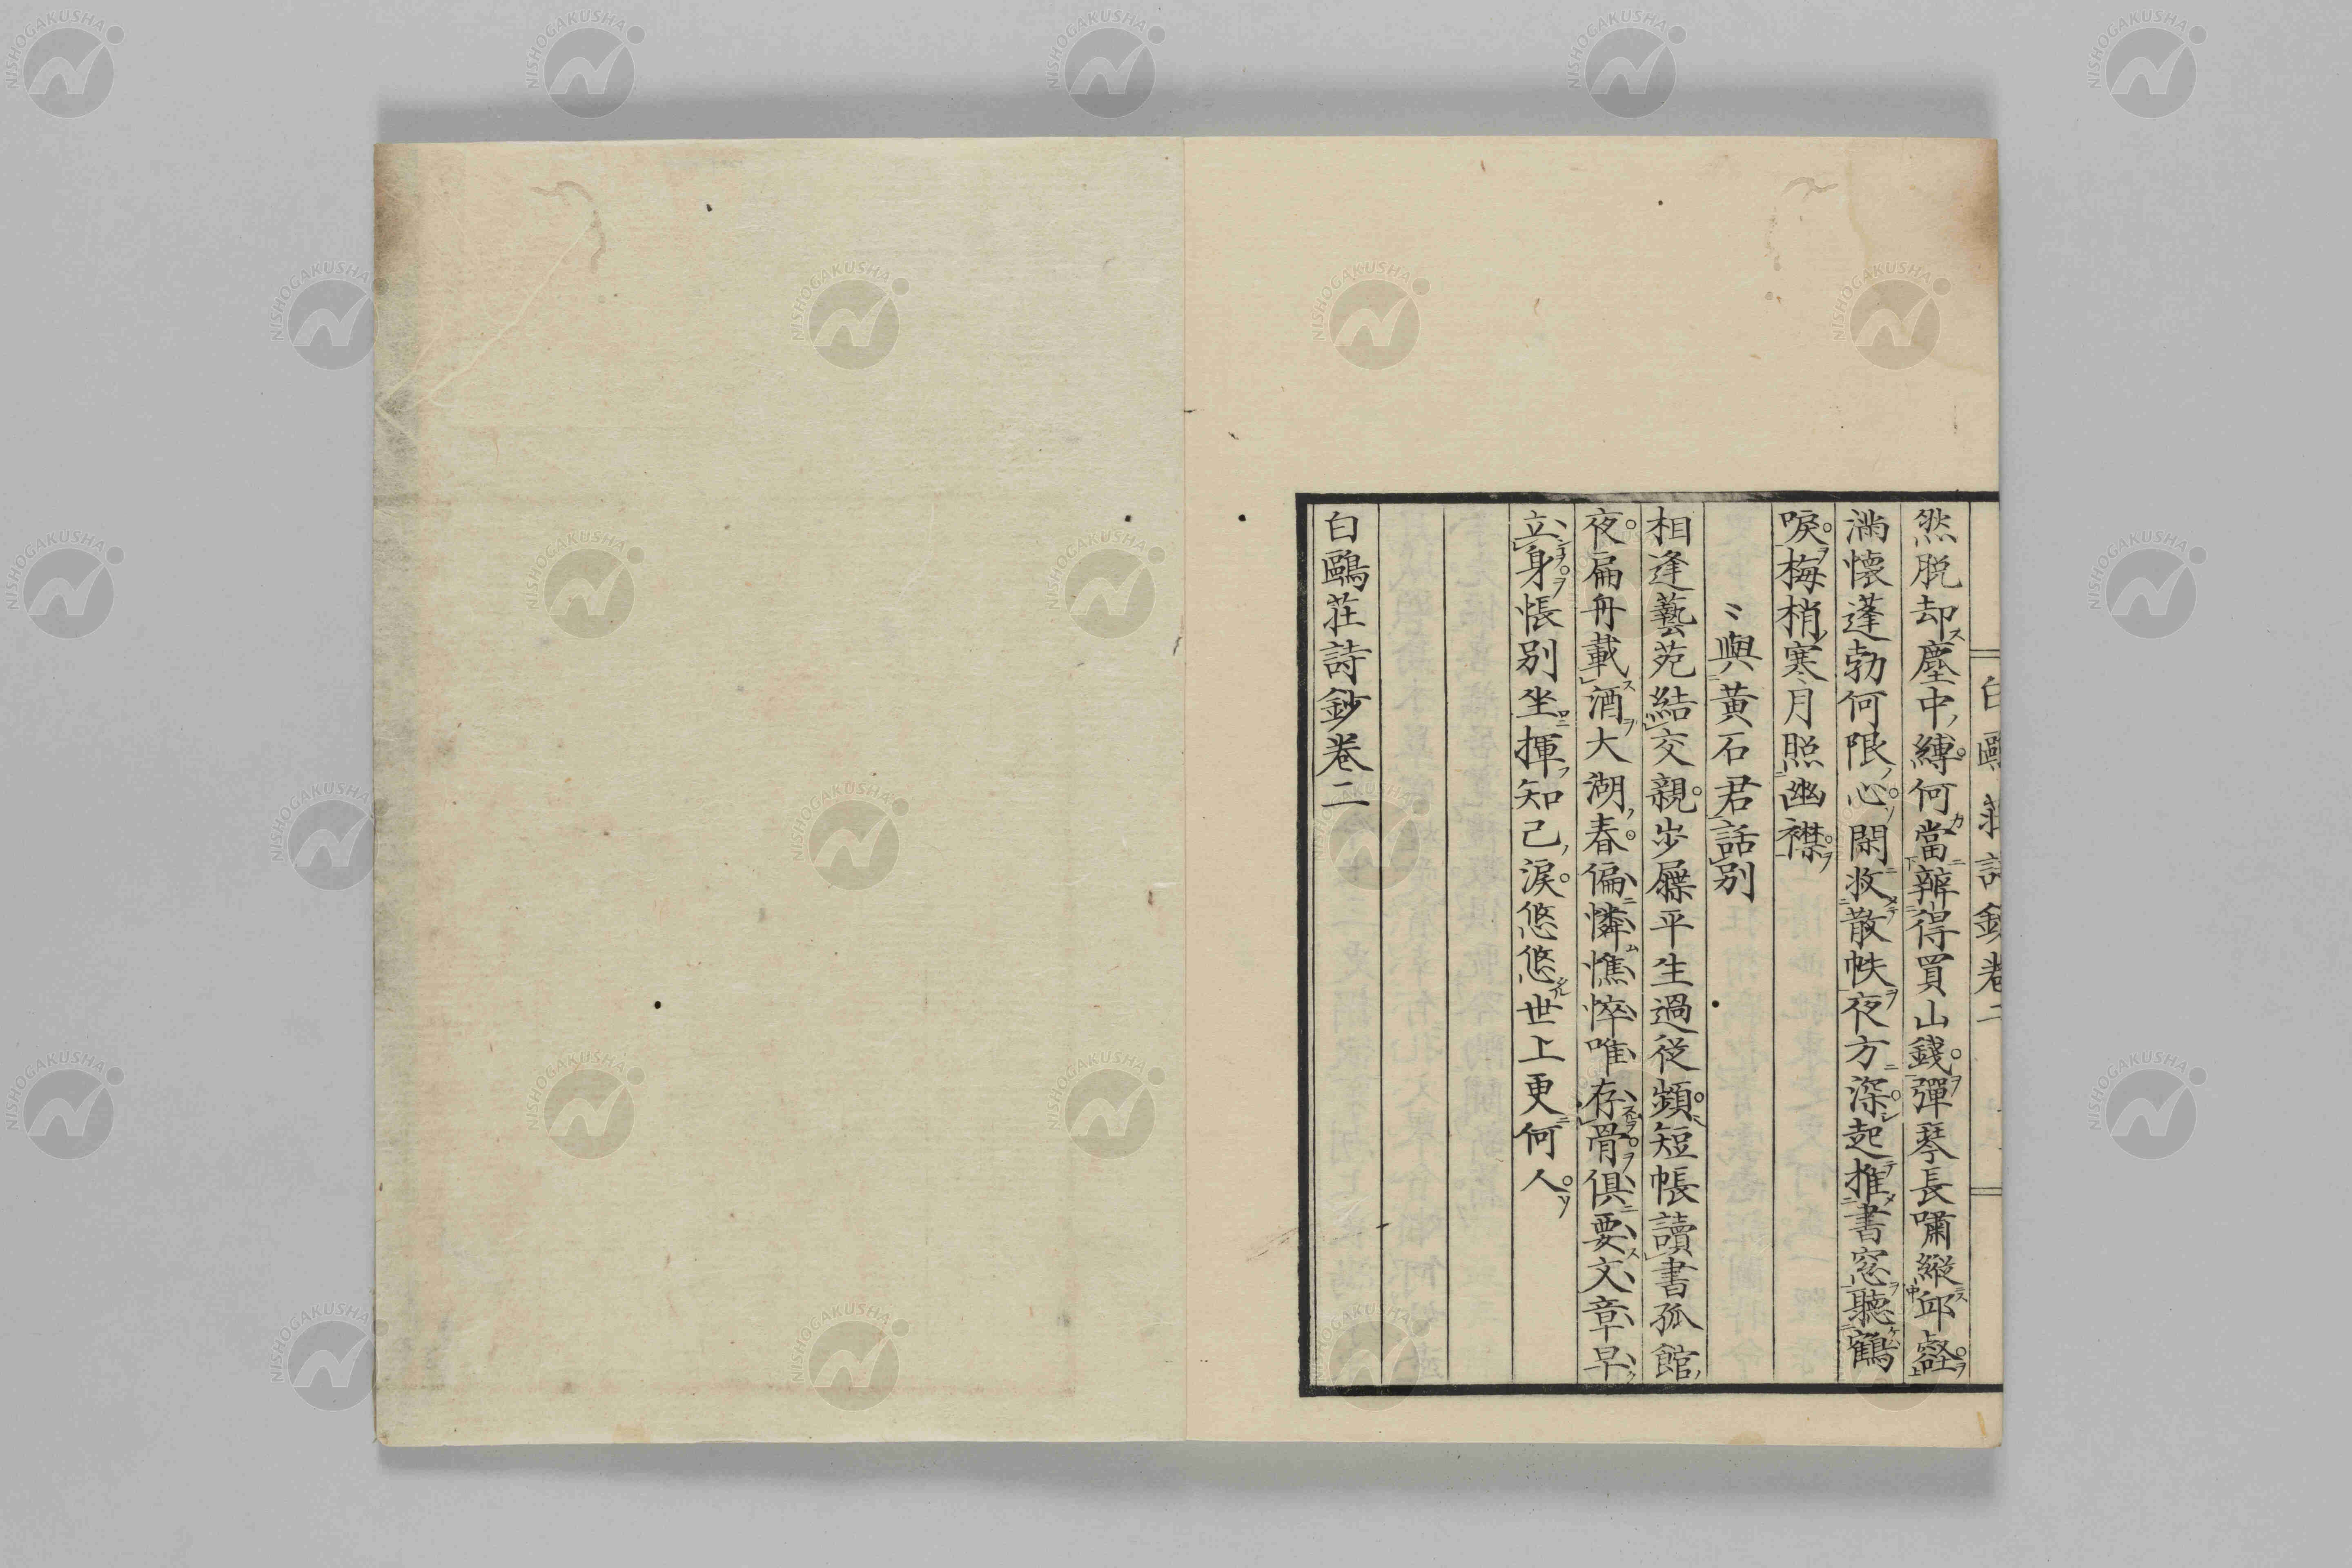 白鷗莊詩鈔卷二
然脫却塵中縛何當辦得買山錢彈琴長嘯縱邱壑
滿懷蓬勃何限心閑收散帙夜方深起推書窓聽鶴
唳梅梢寒月照幽襟
〻與黃石君話別
相逢藝苑結交親步屧平生過從頻短帳讀書孤館
夜扁舟載酒大湖春偏憐憔悴唯存骨俱要文章早
立身悵別坐揮知己淚悠悠世上更何人
白鷗莊詩鈔卷二
NISHOGAKUSHA